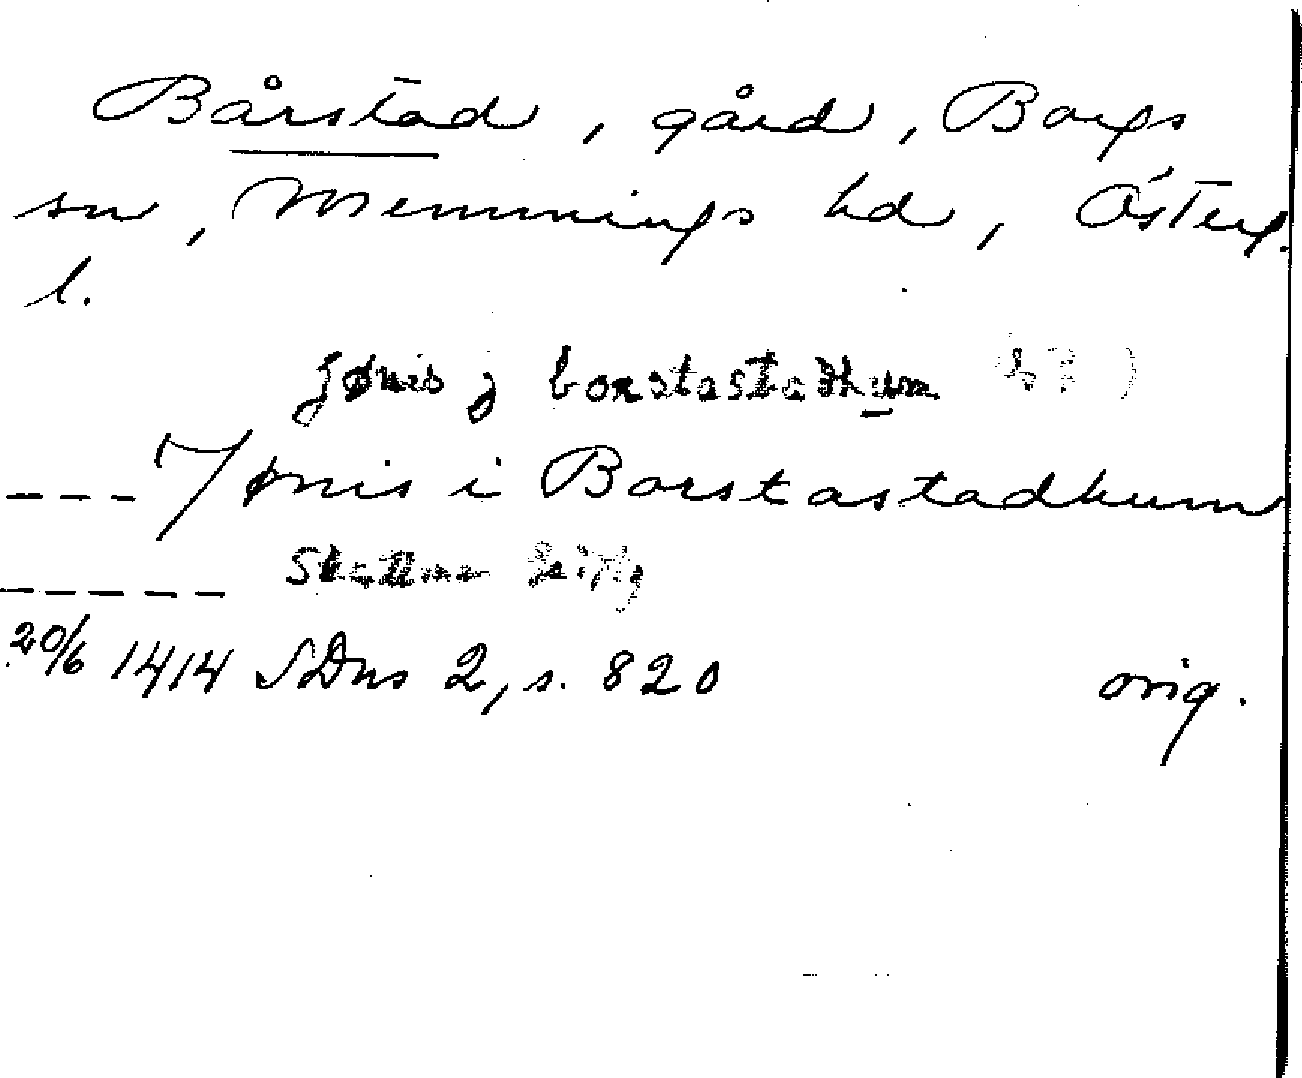 Bårstad, gård, Borgs
sn, Memmings hd, Österg.
l.
jønis j borstastadhum
--- Jønis i Borstastadhum
-----
20/6 1414 SDns 2, s. 820 orig.